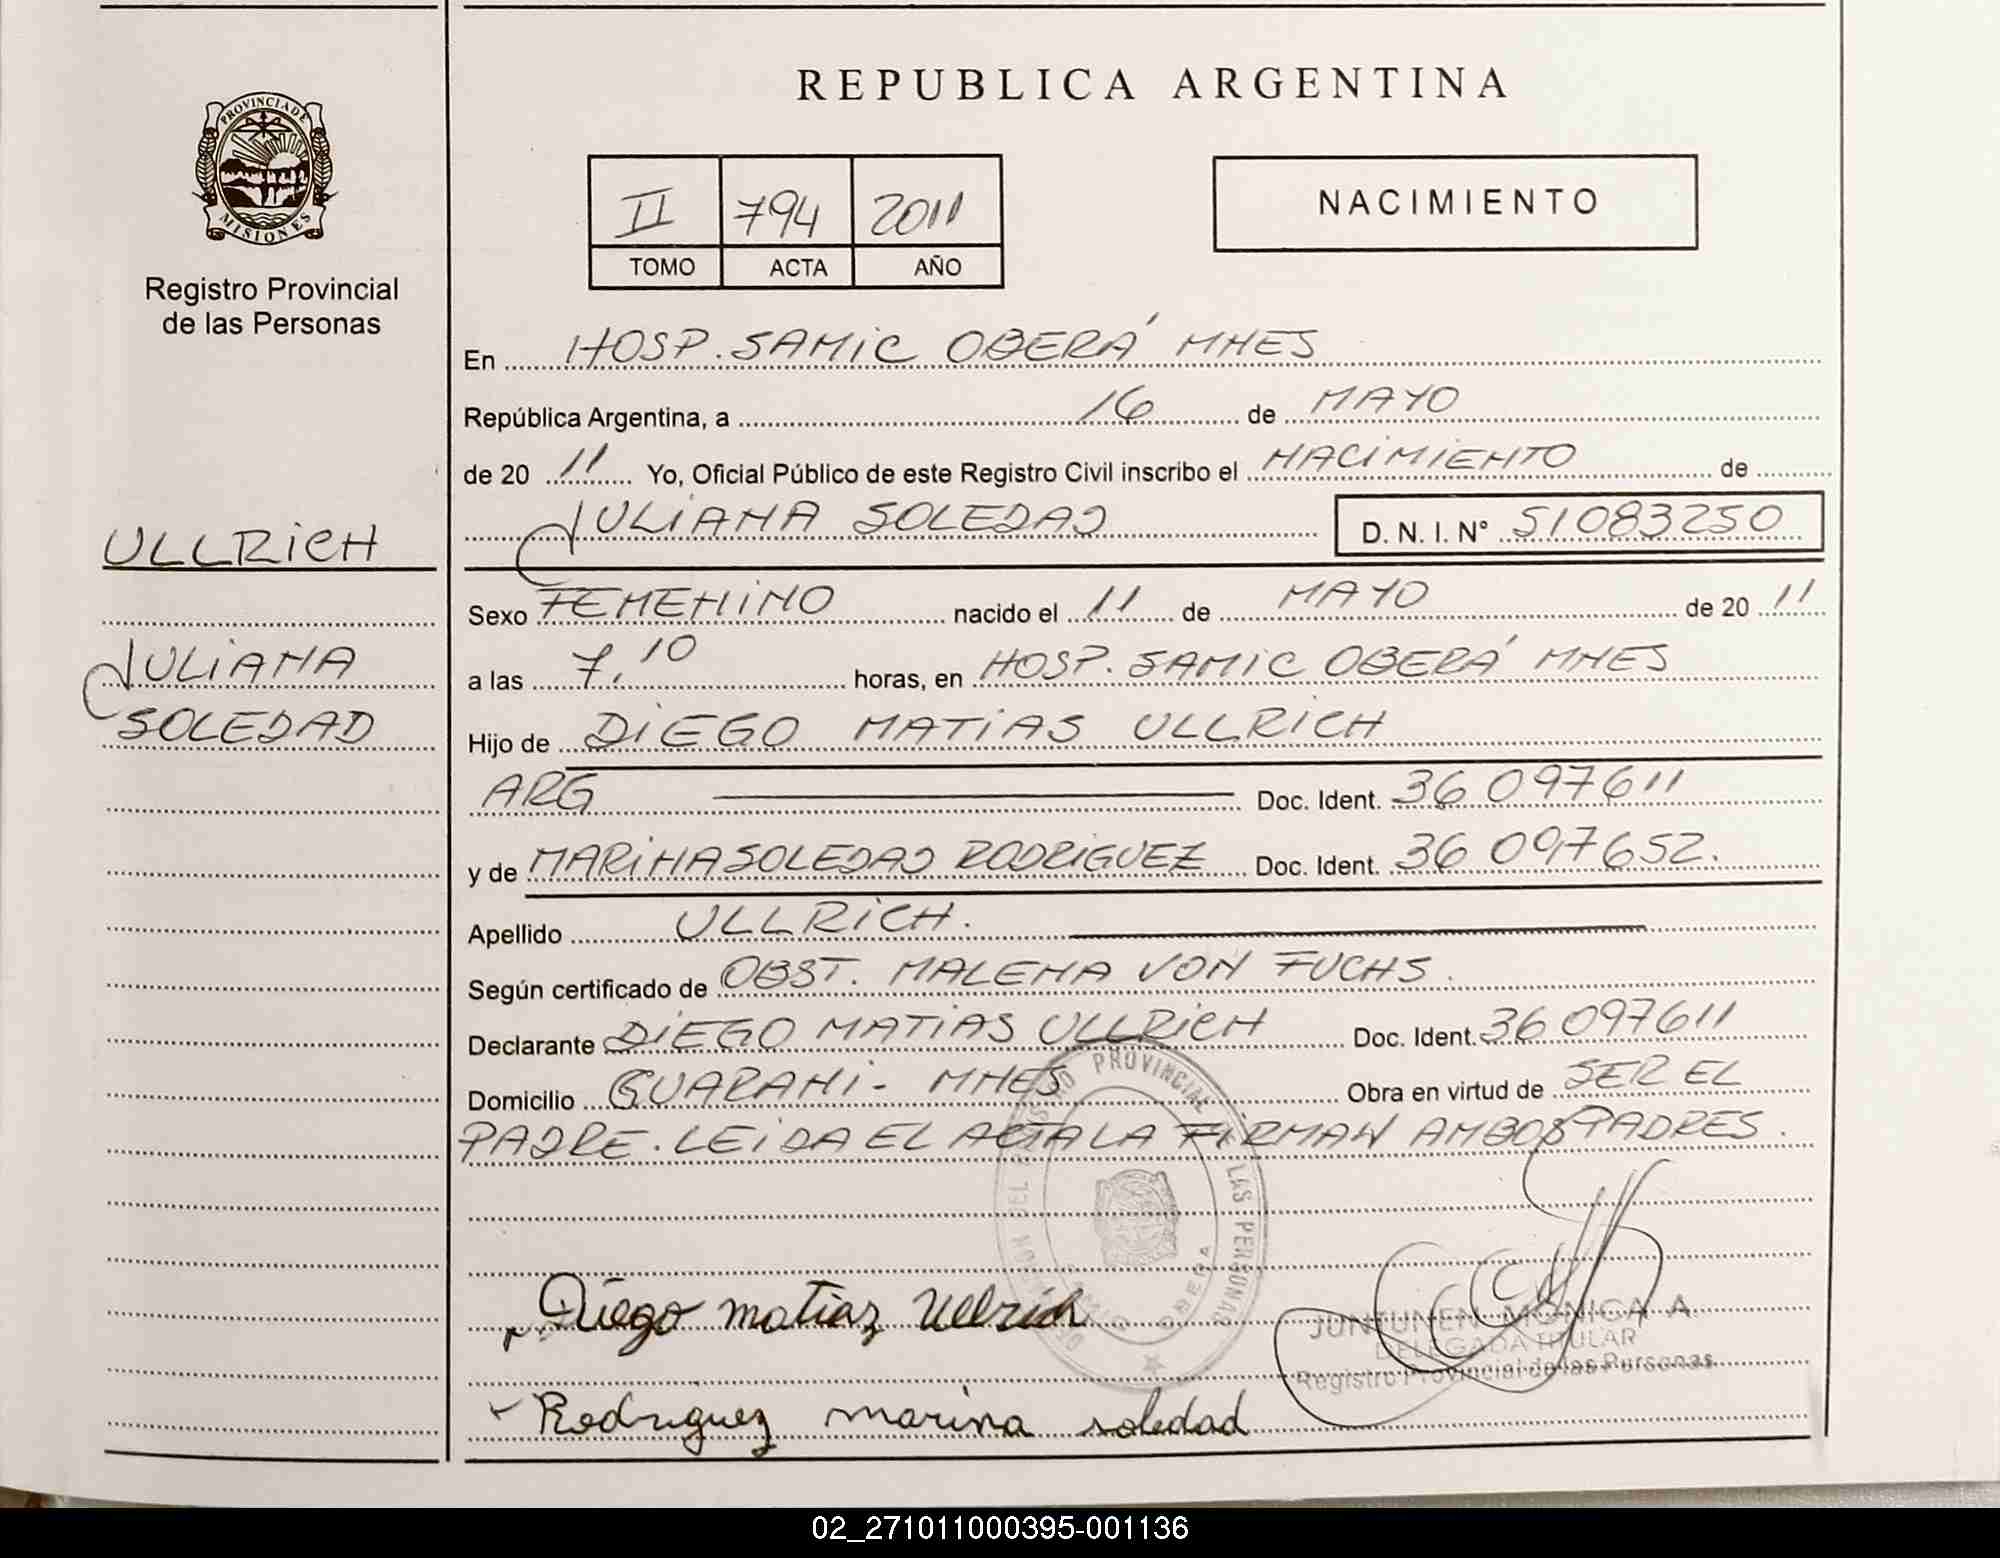 REPUBLICA ARGENTINA
PROVINCIA DE
MISIONES
Registro Provincial
de las Personas
II 794 2011
TOMO ACTA AÑO
NACIMIENTO
En HOSP. SAMIC OBERÁ MNES
República Argentina, a 16 de MAYO
de 20 11 Yo, Oficial Público de este Registro Civil inscribo el NACIMIENTO de
JULIANA SOLEDAD D. N. I. N° 51083250
ULLRICH
JULIANA
SOLEDAD
Sexo FEMENINO nacido el 11 de MAYO de 20 11
a las 7.10 horas, en HOSP. SAMIC OBERÁ MNES
Hijo de DIEGO MATIAS ULLRICH
ARG Doc. Ident. 36 097611
y de MARINA SOLEDAD RODRIGUEZ Doc. Ident. 36 097652.
Apellido ULLRICH.
Según certificado de OBST. MALENA VON FUCHS.
Declarante DIEGO MATIAS ULLRICH Doc. Ident. 36 097611
Domicilio GUARANI - MNES Obra en virtud de SER EL
PADRE. LEIDA EL ACTA LA FIRMAN AMBOS PADRES.
PROVINCIAL DE LAS PERSONAS
OBERA
Diego matiaz Ullrich
JUNTUNEN MONICA A
DELEGADA TITULAR
Registro Provincial de las Personas
Rodriguez marina soledad
02_271011000395-001136